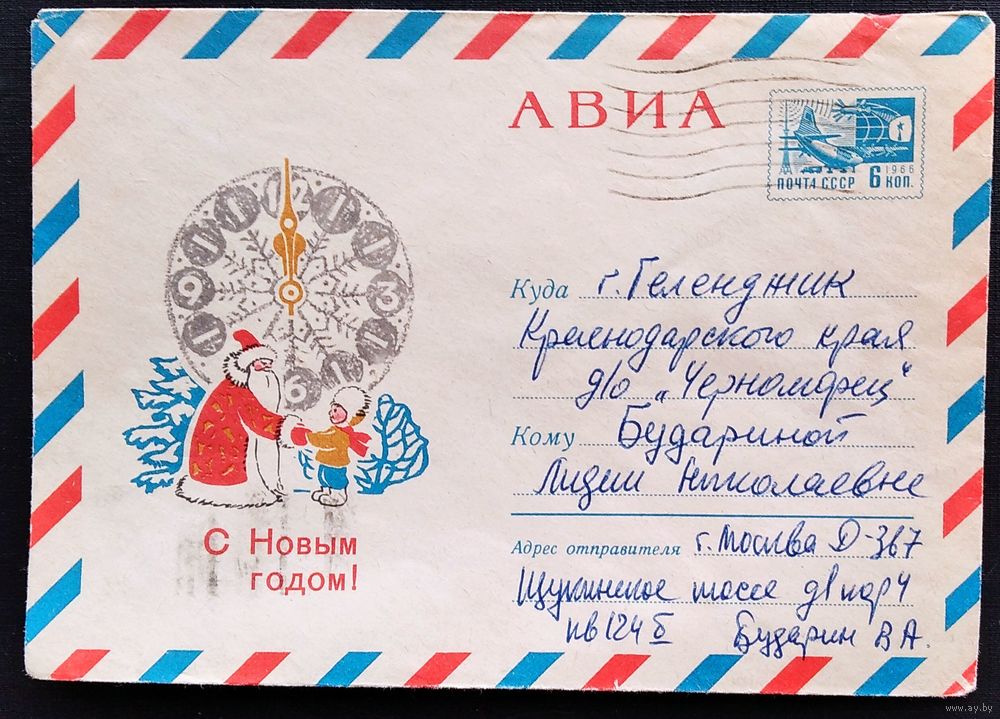 АВИА
1966
ПОЧТА СССР 6 КОП.
12 1 3 6 9
Куда г. Геленджик
Краснодарского края
д/о „Черноморец"
Кому Будариной
Лидии Николаевне
С Новым
годом!
Адрес отправителя г. Москва Д-367
Щукинское шоссе д1 кор 4
кв 124 б Бударин В А.
www.ay.by